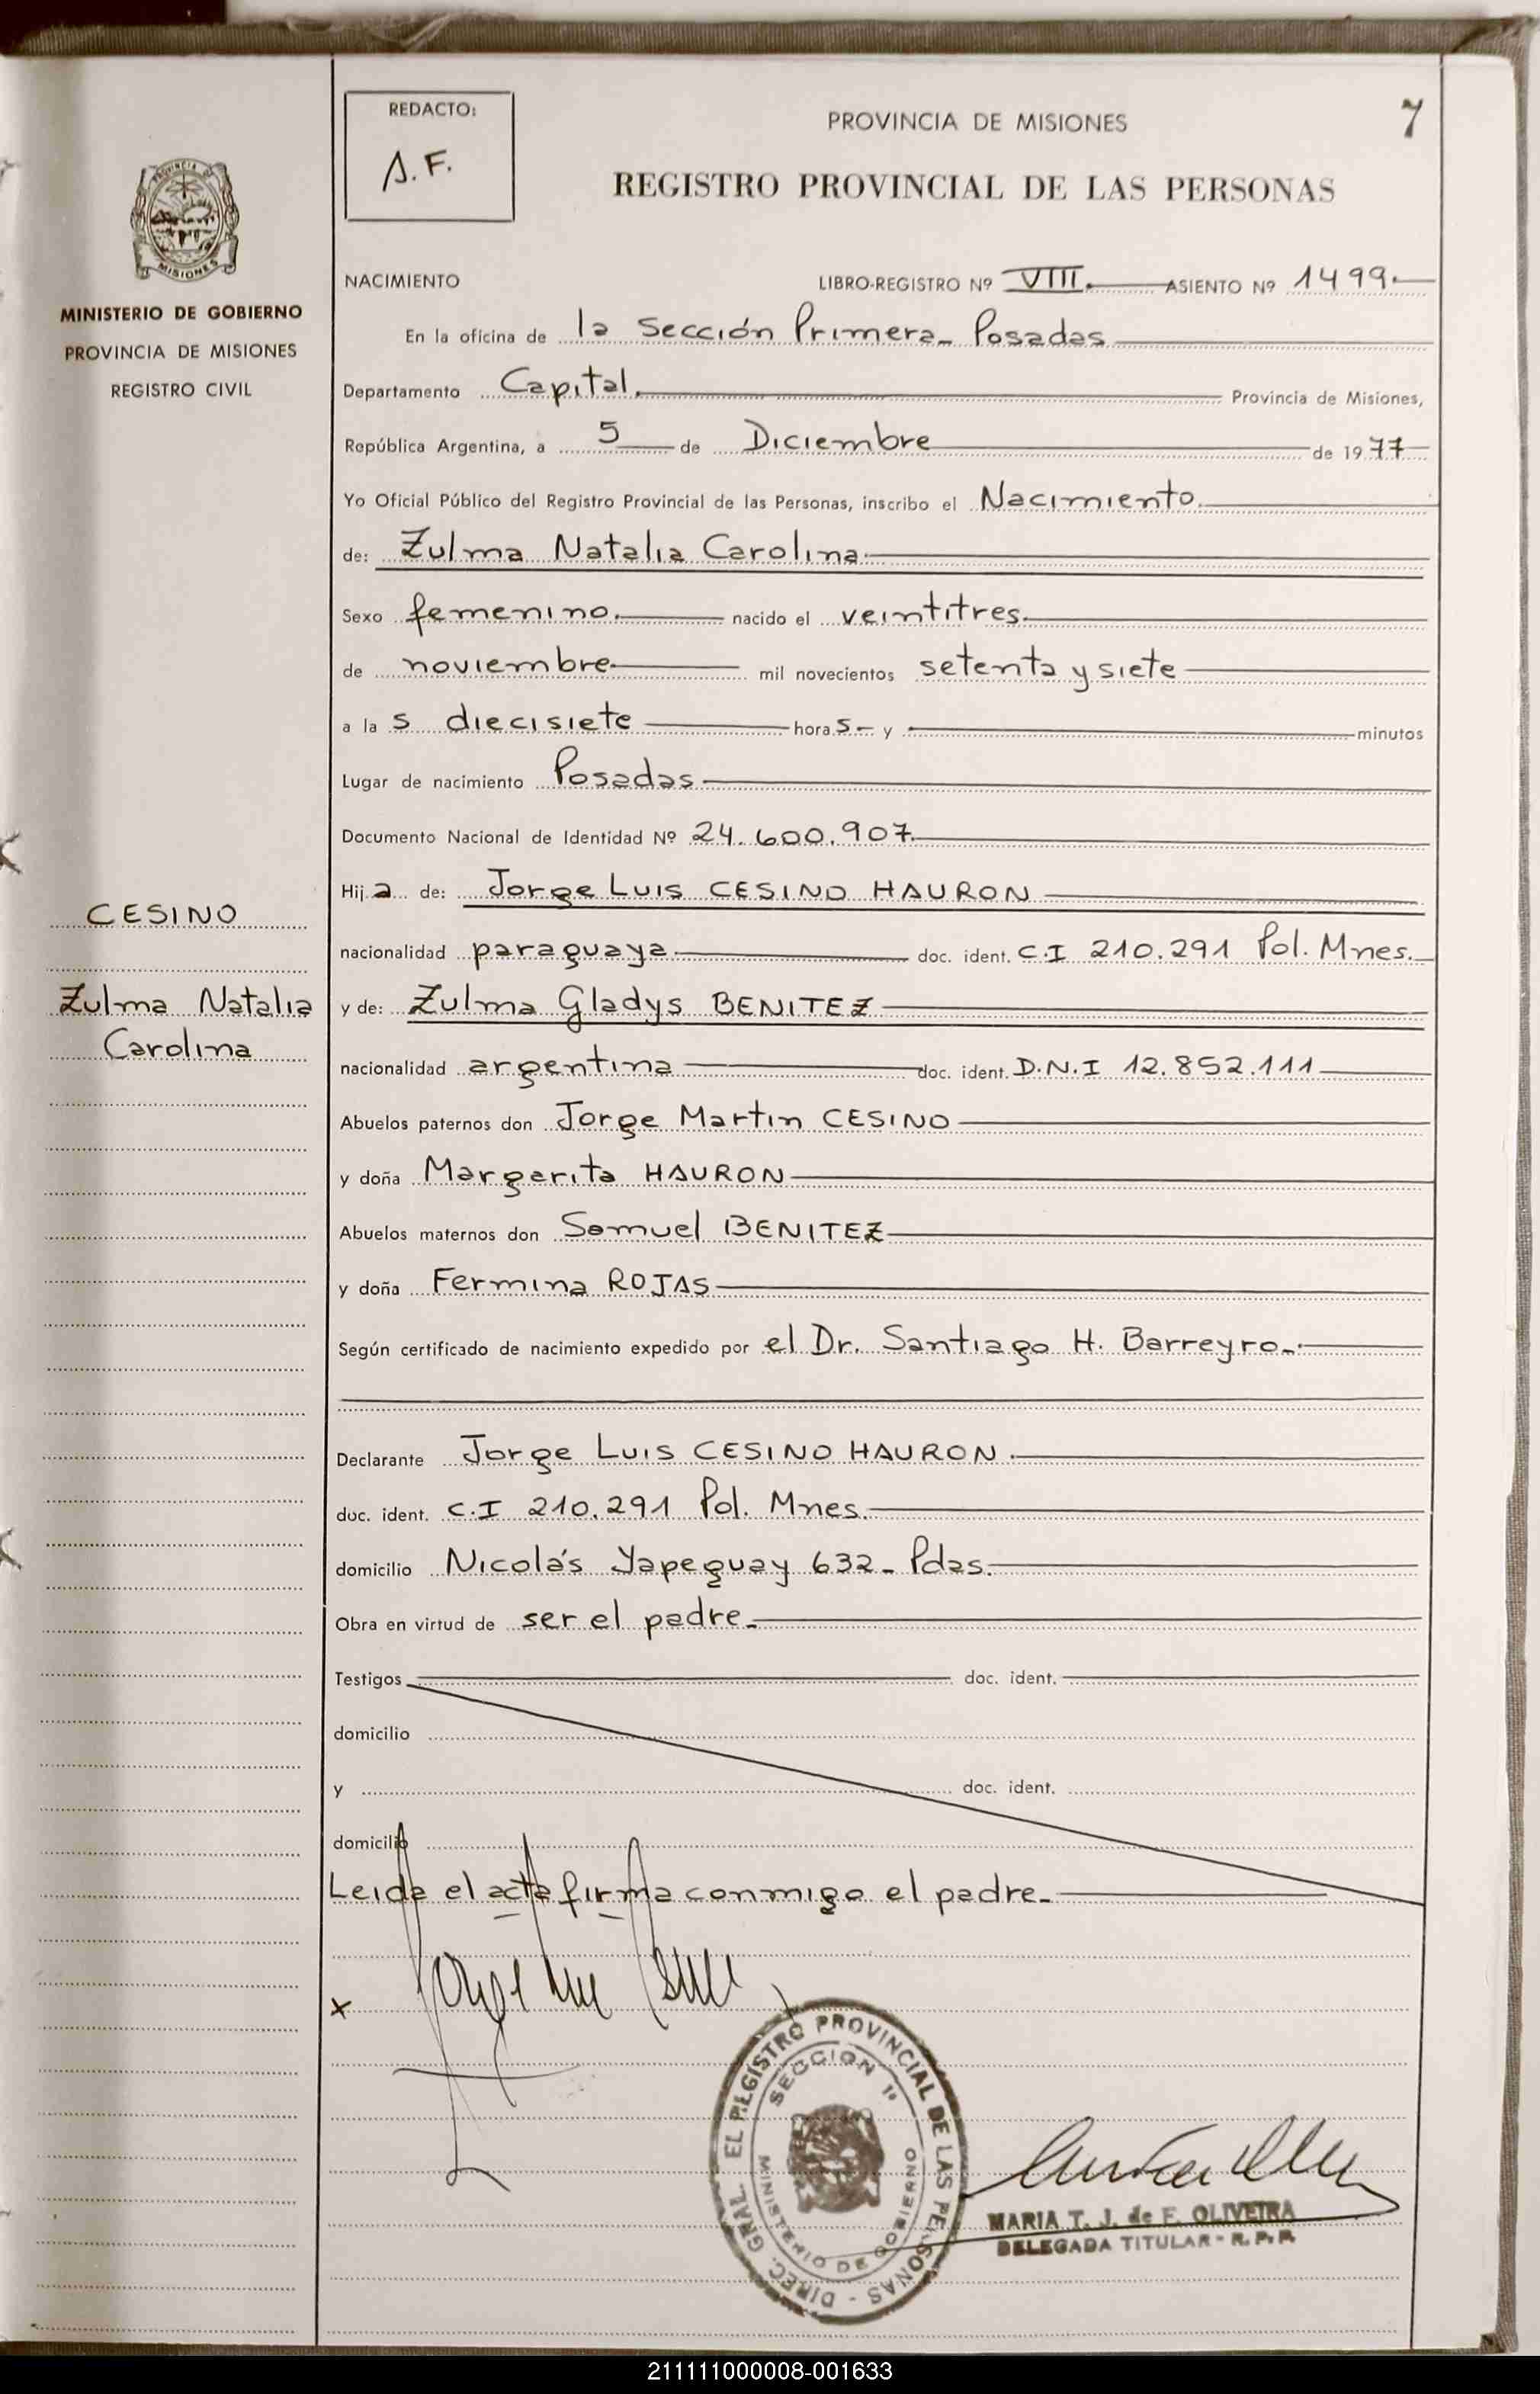 REDACTO:
A.F.
7
PROVINCIA DE MISIONES
REGISTRO PROVINCIAL DE LAS PERSONAS
MISIONES
MINISTERIO DE GOBIERNO
PROVINCIA DE MISIONES
REGISTRO CIVIL
CESINO
Zulma Natalia
Carolina
NACIMIENTO LIBRO-REGISTRO Nº VIII. ASIENTO Nº 1499.
En la oficina de la Sección Primera_ Posadas
Departamento Capital. Provincia de Misiones,
República Argentina, a 5 de Diciembre de 1977
Yo Oficial Público del Registro Provincial de las Personas, inscribo el Nacimiento.
de: Zulma Natalia Carolina
Sexo femenino. nacido el veintitres.
de noviembre mil novecientos setenta y siete
a la s diecisiete hora s- y minutos
Lugar de nacimiento Posadas
Documento Nacional de Identidad Nº 24.600.907.
Hij a de: Jorge Luis CESINO HAURON
nacionalidad paraguaya doc. ident. C.I 210.291 Pol. Mnes.
y de: Zulma Gladys BENITEZ
nacionalidad argentina doc. ident. D.N.I 12.852.111
Abuelos paternos don Jorge Martin CESINO
y doña Margarita HAURON
Abuelos maternos don Samuel BENITEZ
y doña Fermina ROJAS
Según certificado de nacimiento expedido por el Dr. Santiago H. Barreyro_.
Declarante Jorge Luis CESINO HAURON.
doc. ident. C.I 210.291 Pol. Mnes.
domicilio Nicolás Yapeguay 632_ Pdas.
Obra en virtud de ser el padre_
Testigos doc. ident.
domicilio
y doc. ident.
domicilio
Leida el acta firma conmigo el padre_
x
DIREC. GRAL. EL REGISTRO PROVINCIAL DE LAS PERSONAS -
SECCION 1ª
MINISTERIO DE GOBIERNO
MARIA T. J. de F. OLIVEIRA
DELEGADA TITULAR - R. P. P.
211111000008-001633